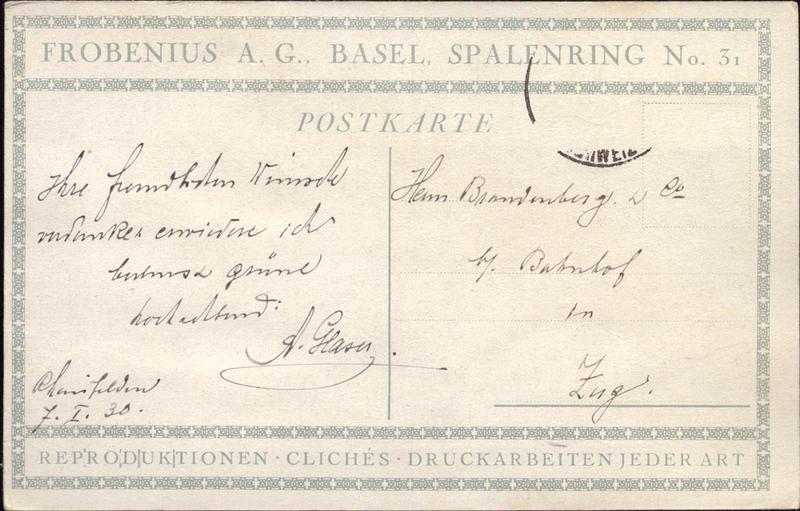 FROBENIUS A. G., BASEL, SPALENRING No. 31
POSTKARTE
Ihre freundlichsten Wünsche
verdankend erwiedere ich
grüne
hochachtend:
A. Glaser.
Rheinfelden
7. I. 30.
SCHWEIZ
Herrn Brandenberg & Co
b/ Bahnhof
in
Zug.
REPRODUKTIONEN · CLICHÉS · DRUCKARBEITEN JEDER ART